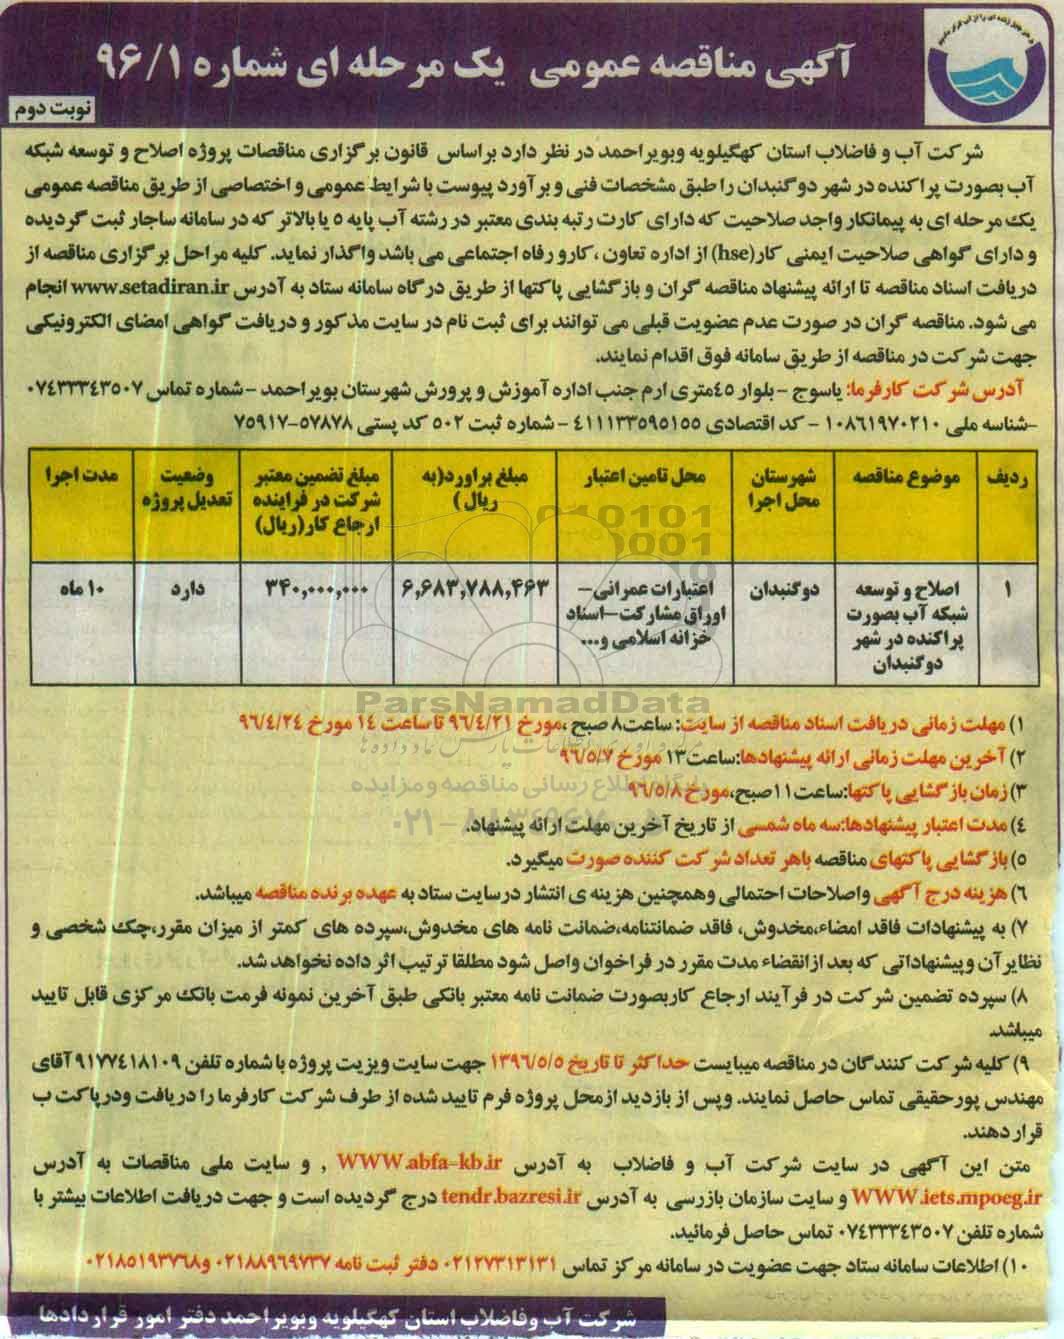 آگهی مناقصه عمومی یک مرحله ای شماره ۹۶/۱
نوبت دوم
شرکت آب و فاضلاب استان کهگیلویه وبویراحمد در نظر دارد براساس قانون برگزاری مناقصات پروژه اصلاح و توسعه شبکه
آب بصورت پراکنده در شهر دوگنبدان را طبق مشخصات فنی و برآورد پیوست با شرایط عمومی و اختصاصی از طریق مناقصه عمومی
یک مرحله ای به پیمانکار واجد صلاحیت که دارای کارت رتبه بندی معتبر در رشته آب پایه ۵ یا بالاتر که در سامانه ساجار ثبت گردیده
و دارای گواهی صلاحیت ایمنی کار(hse) از اداره تعاون ،کارو رفاه اجتماعی می باشد واگذار نماید. کلیه مراحل برگزاری مناقصه از
دریافت اسناد مناقصه تا ارائه پیشنهاد مناقصه گران و بازگشایی پاکتها از طریق درگاه سامانه ستاد به آدرس www.setadiran.ir انجام
می شود. مناقصه گران در صورت عدم عضویت قبلی می توانند برای ثبت نام در سایت مذکور و دریافت گواهی امضای الکترونیکی
جهت شرکت در مناقصه از طریق سامانه فوق اقدام نمایند.
آدرس شرکت کارفرما: یاسوج - بلوار ٤٥متری ارم جنب اداره آموزش و پرورش شهرستان بویراحمد - شماره تماس ۰۷۴۳۳۳۴۳۵۰۷
-شناسه ملی ۱۰۸۶۱۹۷۰۲۱۰ - کد اقتصادی ۴۱۱۱۳۳۵۹۵۱۵۵ - شماره ثبت ۵۰۲ کد پستی ۵۷۸۷۸-۷۵۹۱۷
ردیف
موضوع مناقصه
شهرستان
محل اجرا
محل تامین اعتبار
مبلغ براورد(به
ریال)
مبلغ تضمین معتبر
شرکت در فرآینده
ارجاع کار(ریال)
وضعیت
تعدیل پروژه
مدت اجرا
۱
اصلاح و توسعه
شبکه آب بصورت
پراکنده در شهر
دوگنبدان
دوگنبدان
اعتبارات عمرانی-
اوراق مشارکت-اسناد
خزانه اسلامی و...
۶,۶۸۳,۷۸۸,۴۶۳
۳۴۰,۰۰۰,۰۰۰
دارد
۱۰ ماه
ParsNamadData
۱) مهلت زمانی دریافت اسناد مناقصه از سایت: ساعت۸ صبح ،مورخ ۹۶/۴/۲۱ تا ساعت ۱۴ مورخ ۹۶/۴/۲۴
۲) آخرین مهلت زمانی ارائه پیشنهادها:ساعت۱۳ مورخ ۹۶/۵/۷
پایگاه اطلاع رسانی مناقصه و مزایده
۳) زمان بازگشایی پاکتها:ساعت۱۱صبح،مورخ ۹۶/۵/۸
٤) مدت اعتبار پیشنهادها:سه ماه شمسی از تاریخ آخرین مهلت ارائه پیشنهاد.
۵) بازگشایی پاکتهای مناقصه باهر تعداد شرکت کننده صورت میگیرد.
۶) هزینه درج آگهی واصلاحات احتمالی وهمچنین هزینه ی انتشار درسایت ستاد به عهده برنده مناقصه میباشد.
۷) به پیشنهادات فاقد امضاء،مخدوش، فاقد ضمانتنامه،ضمانت نامه های مخدوش،سپرده های کمتر از میزان مقرر،چک شخصی و
نظایرآن وپیشنهاداتی که بعد ازانقضاء مدت مقرر در فراخوان واصل شود مطلقا ترتیب اثر داده نخواهد شد.
۸) سپرده تضمین شرکت در فرآیند ارجاع کاربصورت ضمانت نامه معتبر بانکی طبق آخرین نمونه فرمت بانک مرکزی قابل تایید
میباشد.
۹) کلیه شرکت کنندگان در مناقصه میبایست حداکثر تا تاریخ ۱۳۹۶/۵/۵ جهت سایت ویزیت پروژه با شماره تلفن ۹۱۷۷۴۱۸۱۰۹ آقای
مهندس پورحقیقی تماس حاصل نمایند. وپس از بازدید ازمحل پروژه فرم تایید شده از طرف شرکت کارفرما را دریافت ودرپاکت ب
قرار دهند.
متن این آگهی در سایت شرکت آب و فاضلاب به آدرس WWW.abfa-kb.ir , و سایت ملی مناقصات به آدرس
WWW.iets.mpoeg.ir و سایت سازمان بازرسی به آدرس tendr.bazresi.ir درج گردیده است و جهت دریافت اطلاعات بیشتر با
شماره تلفن ۰۷۴۳۳۳۴۳۵۰۷ تماس حاصل فرمائید.
۱۰) اطلاعات سامانه ستاد جهت عضویت در سامانه مرکز تماس ۰۲۱۲۷۳۱۳۱۳۱ دفتر ثبت نامه ۰۲۱۸۸۹۶۹۷۳۷ و۰۲۱۸۵۱۹۳۷۶۸
شرکت آب وفاضلاب استان کهگیلویه وبویراحمد دفتر امور قراردادها